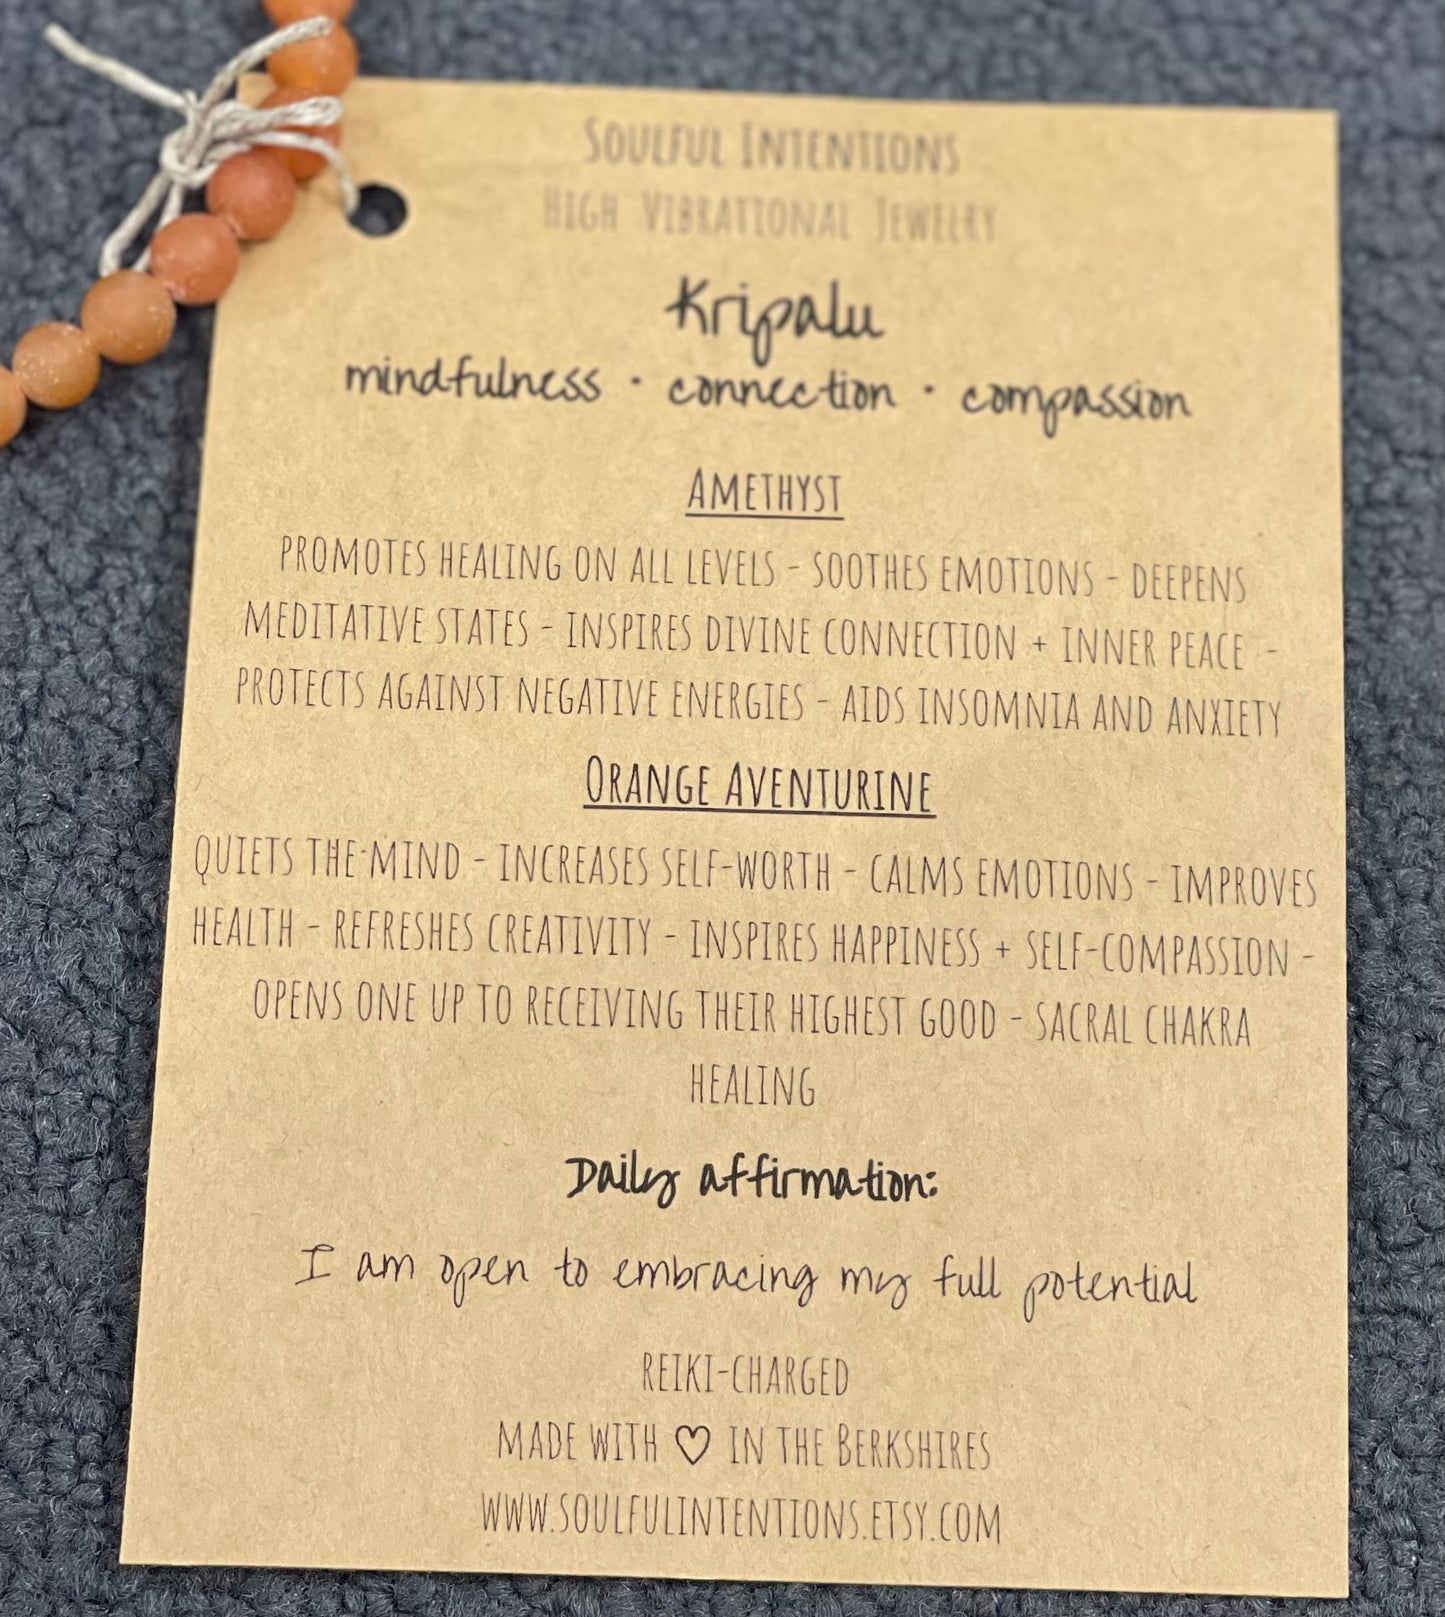 Soulful Intentions
High Vibrational Jewelry
Kripalu
mindfulness · connection · compassion
Amethyst
promotes healing on all levels - soothes emotions - deepens
meditative states - inspires divine connection + inner peace -
protects against negative energies - aids insomnia and anxiety
Orange Aventurine
quiets the mind - increases self-worth - calms emotions - improves
health - refreshes creativity - inspires happiness + self-compassion -
opens one up to receiving their highest good - sacral chakra
healing
Daily affirmation:
I am open to embracing my full potential
reiki-charged
made with ♡ in the Berkshires
www.soulfulintentions.etsy.com